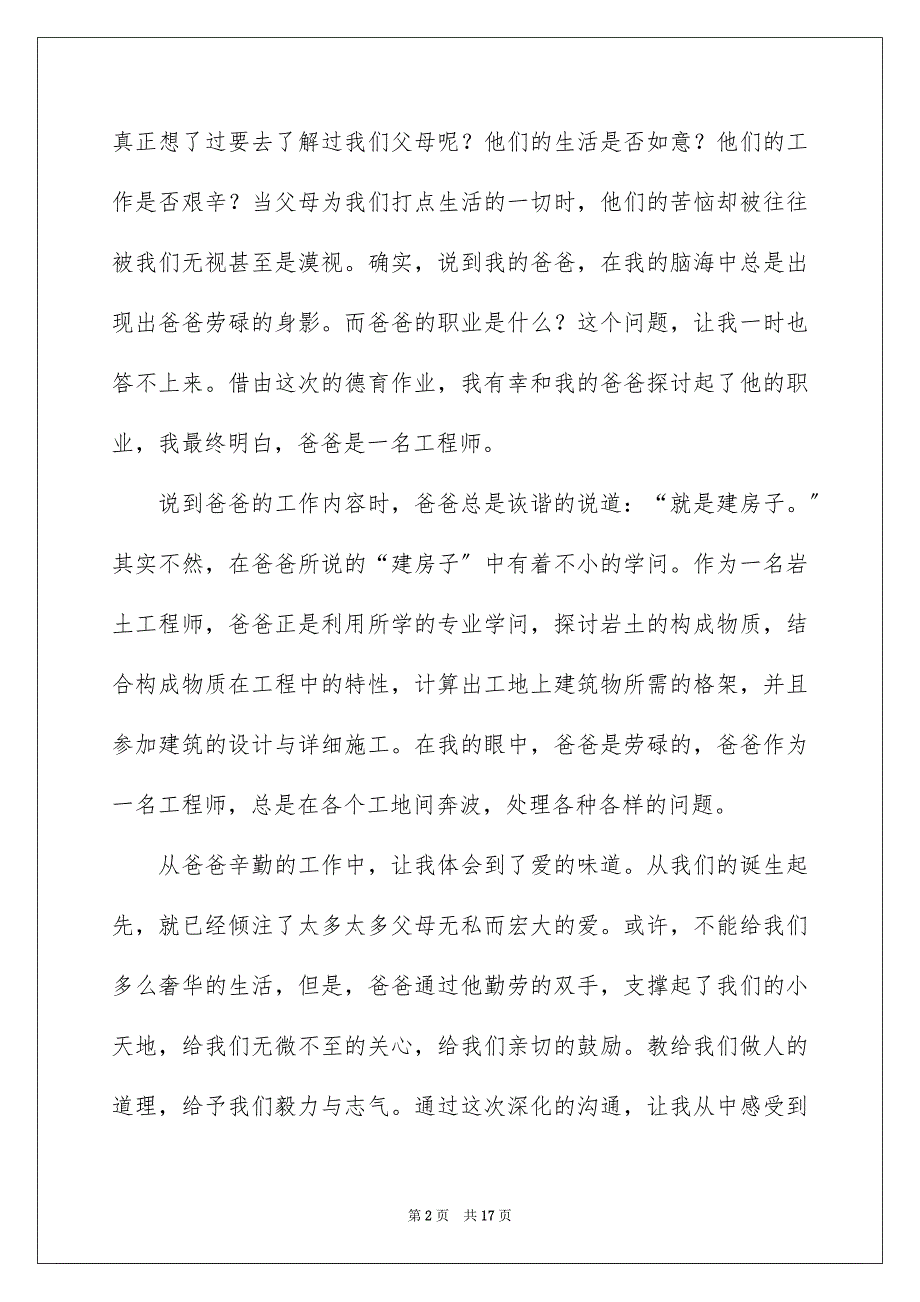 真正想了过要去了解过我们父母呢？他们的生活是否如意？他们的工
作是否艰辛？当父母为我们打点生活的一切时，他们的苦恼却被往往
被我们无视甚至是漠视。确实，说到我的爸爸，在我的脑海中总是出
现出爸爸劳碌的身影。而爸爸的职业是什么？这个问题，让我一时也
答不上来。借由这次的德育作业，我有幸和我的爸爸探讨起了他的职
业，我最终明白，爸爸是一名工程师。
说到爸爸的工作内容时，爸爸总是诙谐的说道：“就是建房子。〞
其实不然，在爸爸所说的“建房子〞中有着不小的学问。作为一名岩
土工程师，爸爸正是利用所学的专业学问，探讨岩土的构成物质，结
合构成物质在工程中的特性，计算出工地上建筑物所需的格架，并且
参加建筑的设计与详细施工。在我的眼中，爸爸是劳碌的，爸爸作为
一名工程师，总是在各个工地间奔波，处理各种各样的问题。
从爸爸辛勤的工作中，让我体会到了爱的味道。从我们的诞生起
先，就已经倾注了太多太多父母无私而宏大的爱。或许，不能给我们
多么奢华的生活，但是，爸爸通过他勤劳的双手，支撑起了我们的小
天地，给我们无微不至的关心，给我们亲切的鼓励。教给我们做人的
道理，给予我们毅力与志气。通过这次深化的沟通，让我从中感受到
第2页 共17页